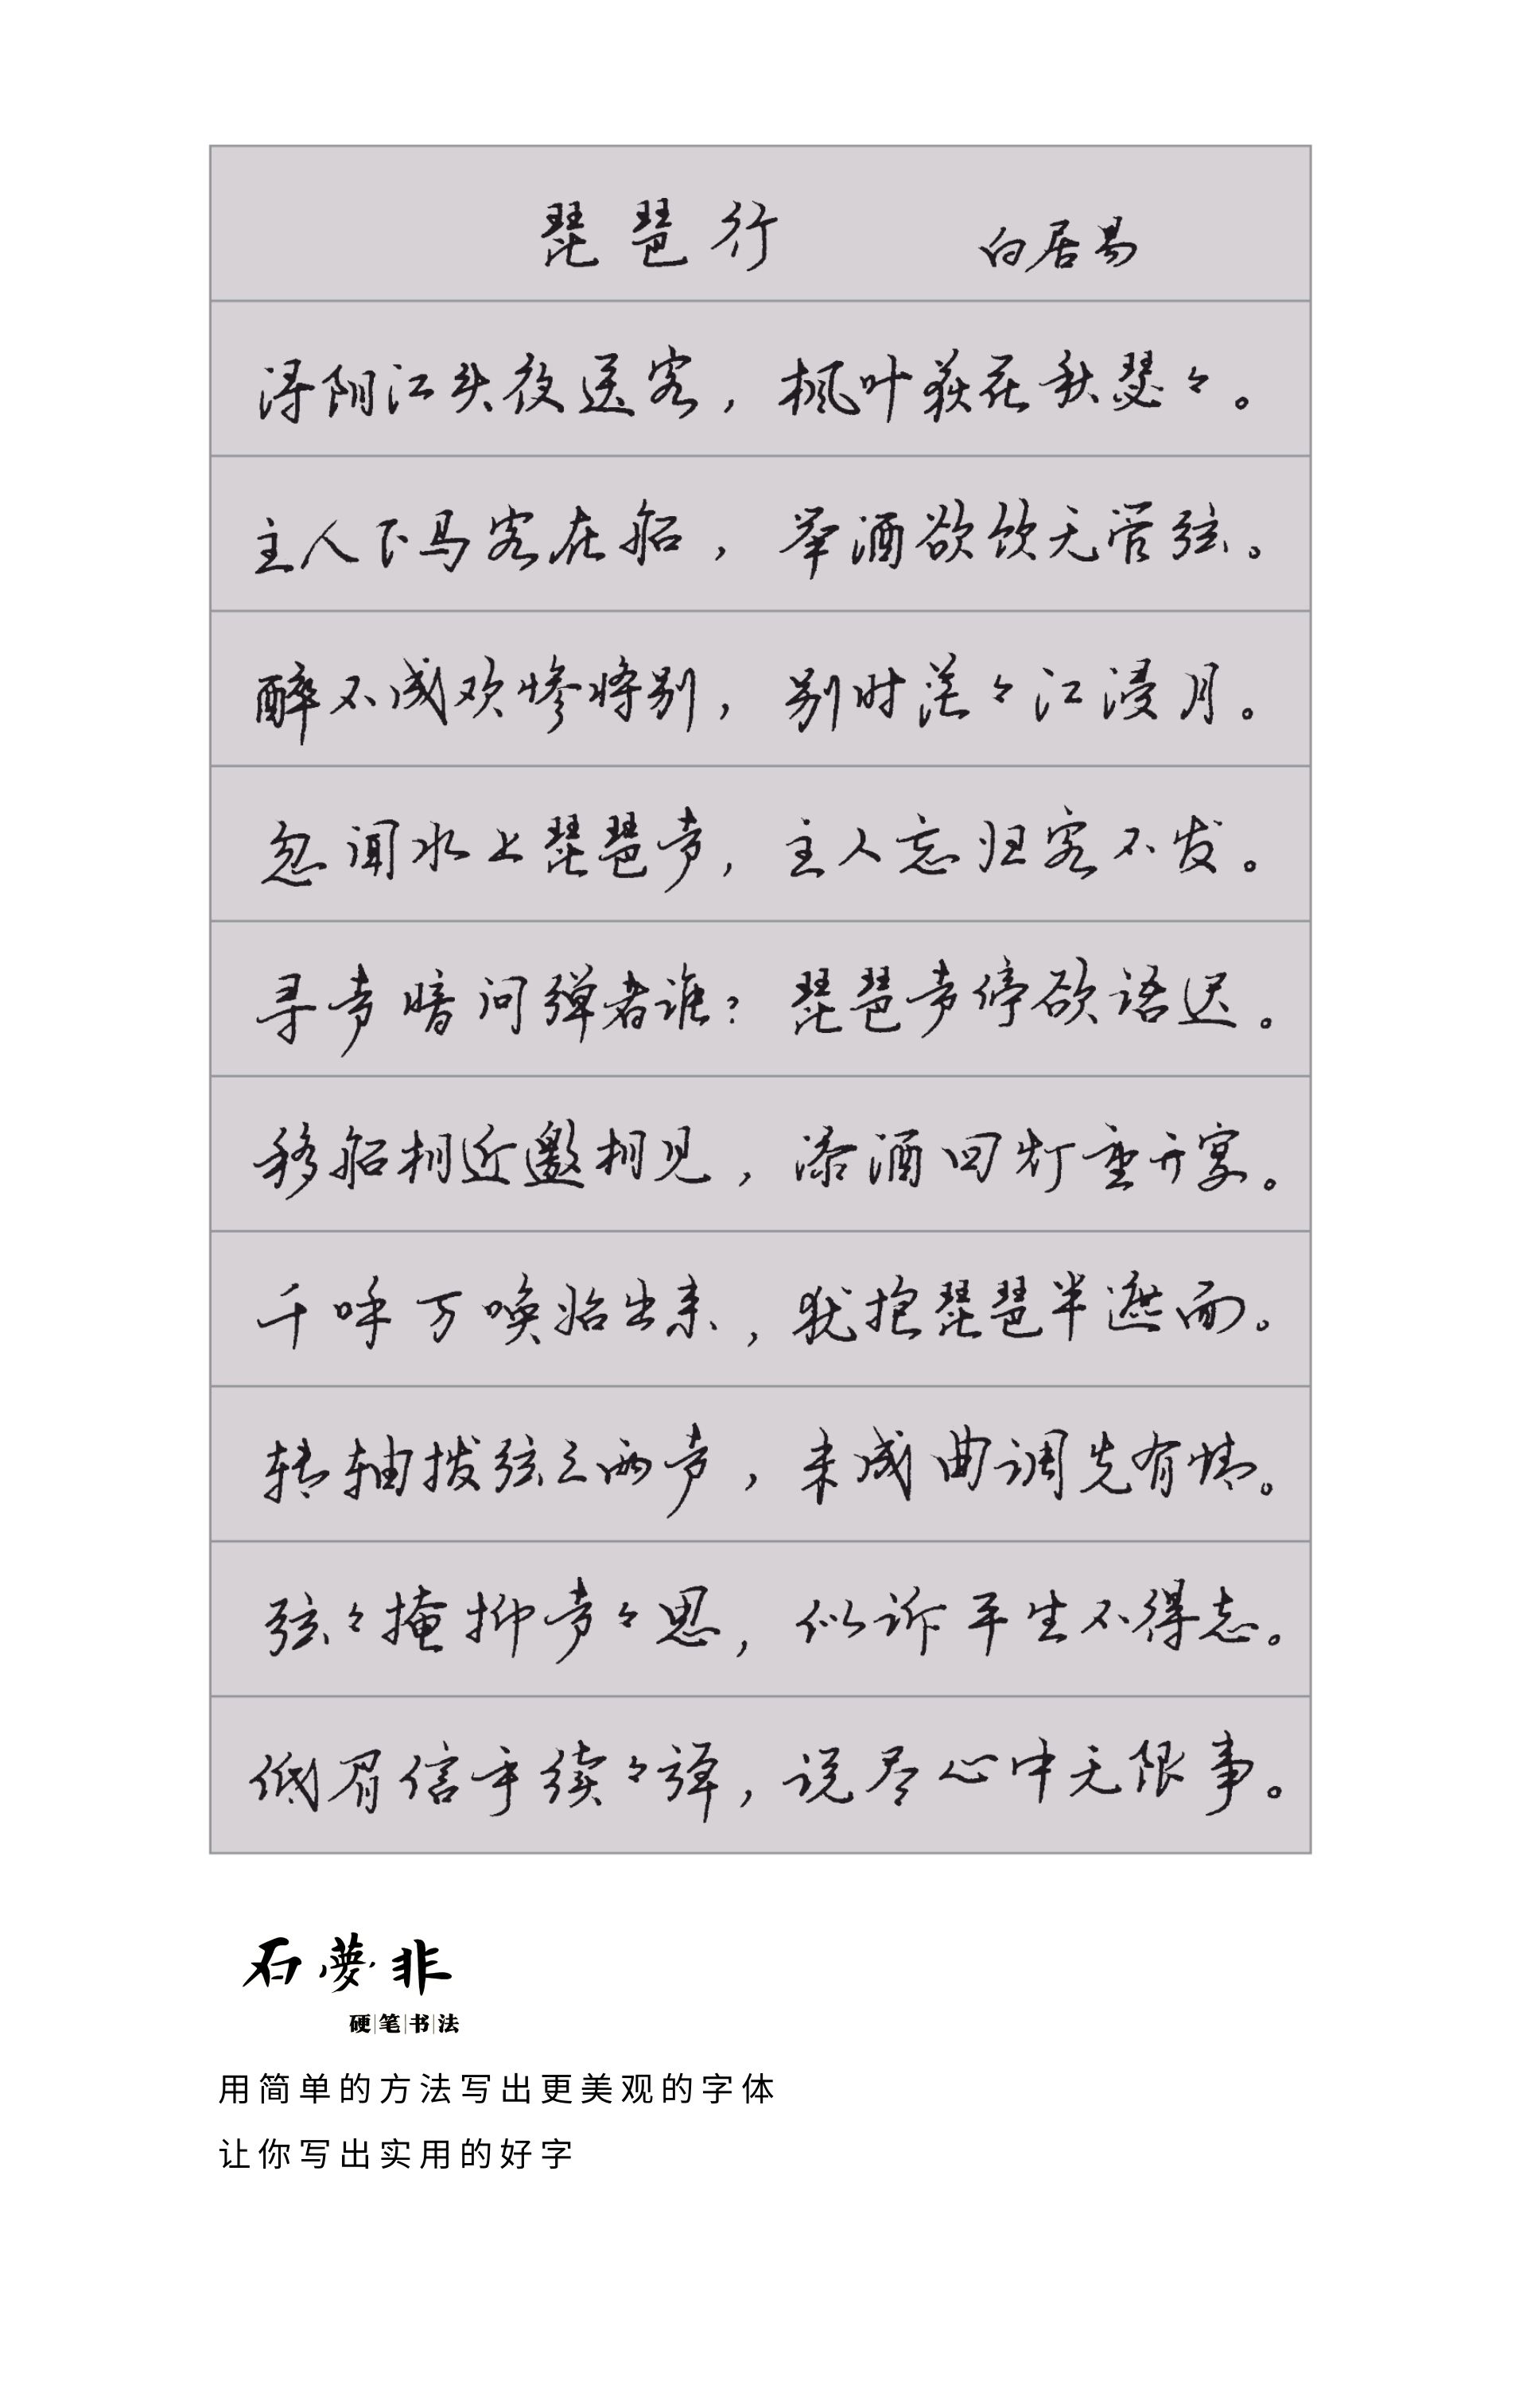 琵琶行 白居易
浔阳江头夜送客，枫叶荻花秋瑟々。
主人下马客在船，举酒欲饮无管弦。
醉不成欢惨将别，别时茫々江浸月。
忽闻水上琵琶声，主人忘归客不发。
寻声暗问弹者谁？琵琶声停欲语迟。
移船相近邀相见，添酒回灯重开宴。
千呼万唤始出来，犹抱琵琶半遮面。
转轴拨弦三两声，未成曲调先有情。
弦々掩抑声々思，似诉平生不得志。
低眉信手续々弹，说尽心中无限事。
石夢非
硬笔书法
用简单的方法写出更美观的字体
让你写出实用的好字